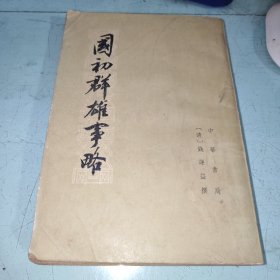 國初群雄事略
中華書局
〔清〕錢謙益撰